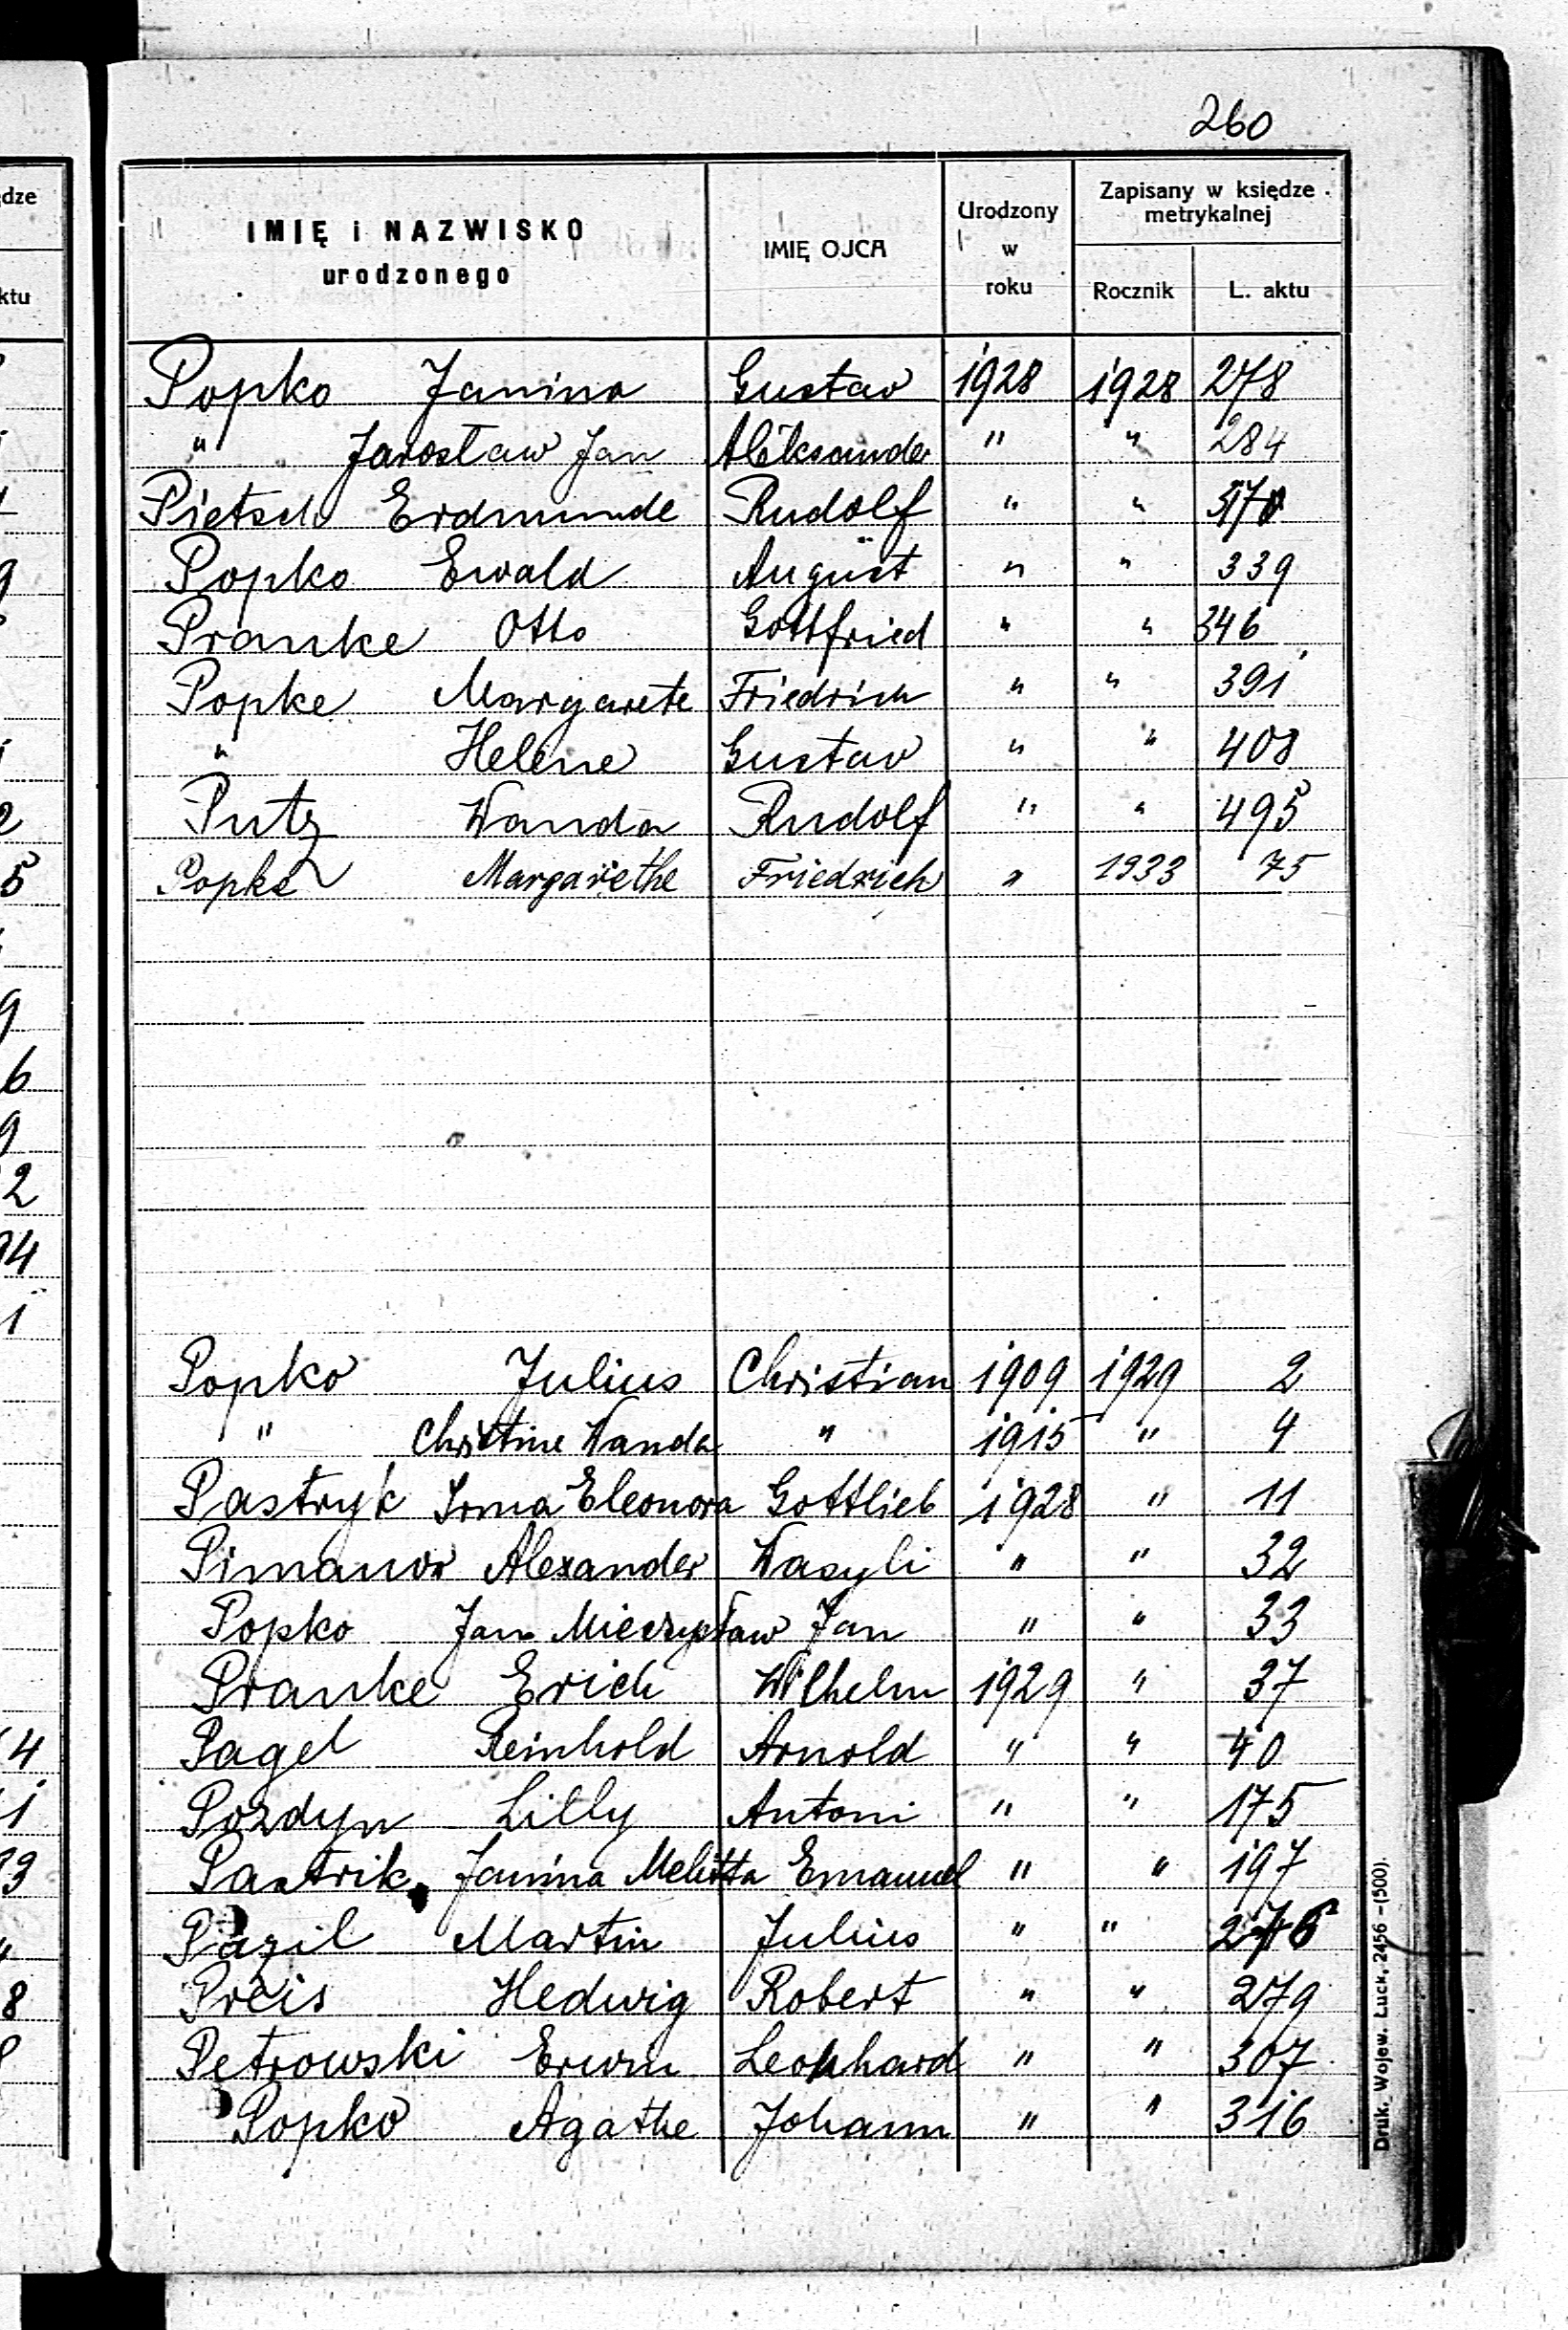 260
IMIĘ i NAZWISKO urodzonego | IMIĘ OJCA | Urodzony w roku | Zapisany w księdze metrykalnej | Rocznik | L. aktu
Popko Janina Gustav 1928 1928 278
" Jarosław Jan Aleksander " " 284
Pietsch Erdmunde Rudolf " "
Popko Ewald August " " 339
Pranke Otto Gottfried " " 346
Popke Margarete Friedrich " " 391
" Helene Gustav " " 408
Putz Wanda Rudolf " " 495
Popke Margarethe Friedrich " 1933 75
Popko Julius Christian 1909 1929 2
" Christine Wanda " 1915 " 4
Pastryk Irma Eleonora Gottlieb 1928 " 11
Pimanow Alexander Wasyli " " 32
Popko Jan Mieczysław Jan " " 33
Pranke Erich Wilhelm 1929 " 37
Pagel Reinhold Arnold " " 40
Pozdyn Lilly Antoni " " 175
Pastrik Janina Melitta Emanuel " " 197
Pazil Martin Julius " " 276
Preis Hedwig Robert " " 279
Petrowski Erwin Leonhard " " 307
Popko Agathe Johann " " 316
Druk. Wojew. Łuck, 2456 -(500).
ędze
ktu